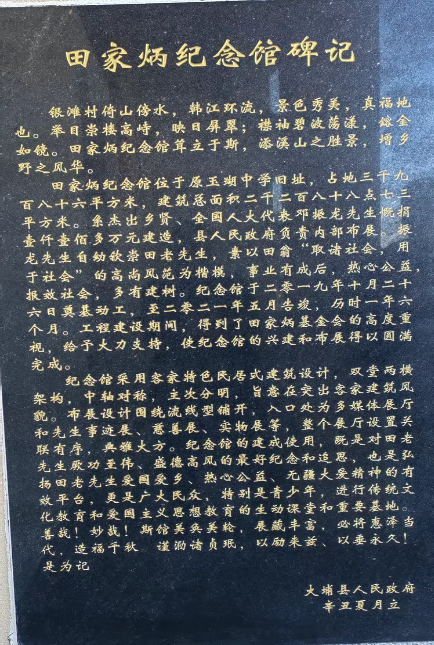 田家炳纪念馆碑记
银滩村倚山傍水，韩江环流，景色秀美，真福地
也。举目崇楼高峙，映日屏翠；襟袖碧波荡漾，鎏金
如镜。田家炳纪念馆耸立于斯，添溪山之胜景，增乡
野之风华。
田家炳纪念馆位于原玉瑚中学旧址，占地三千九
百八十六平方米，建筑总面积二千二百八十八点七三
平方米。系杰出乡贤、全國人大代表邓振龙先生慨捐
壹仟壹佰多万元建造，县人民政府负责内部布展。振
龙先生自幼钦崇田老先生，素以田翁“取诸社会，用
于社会”的高尚风范为楷模，事业有成后，热心公益，
报效社会，多有建树。纪念馆于二〇一九年十月二十
六日奠基动工，至二〇二一年五月告竣，历时一年六
个月。工程建设期间，得到了田家炳基金会的高度重
视，给予大力支持，使纪念馆的兴建和布展得以圆满
完成。
纪念馆采用客家特色民居式建筑设计，双堂两横
架构，中轴对称，主次分明，旨意在突出客家建筑风
貌。布展设计围绕流线型铺开，入口处为多媒体展厅
和先生事迹展、慈善展、实物展等，整个展厅设置关
联有序，典雅大方。纪念馆的建成使用，既是对田老
先生厥功至伟、盛德高风的最好纪念和追思，也是弘
扬田老先生爱国爱乡、热心公益、无疆大爱精神的有
效平台，更是广大民众，特别是青少年，进行传统文
化教育和爱国主义思想教育的生动课堂和重要基地。
善哉！妙哉！斯馆美兵美轮，展藏丰富，必将惠泽当
代，造福千秋 谨泐诸贞珉，以励来兹、以垂永久！
是为记
大埔县人民政府
辛丑夏月立